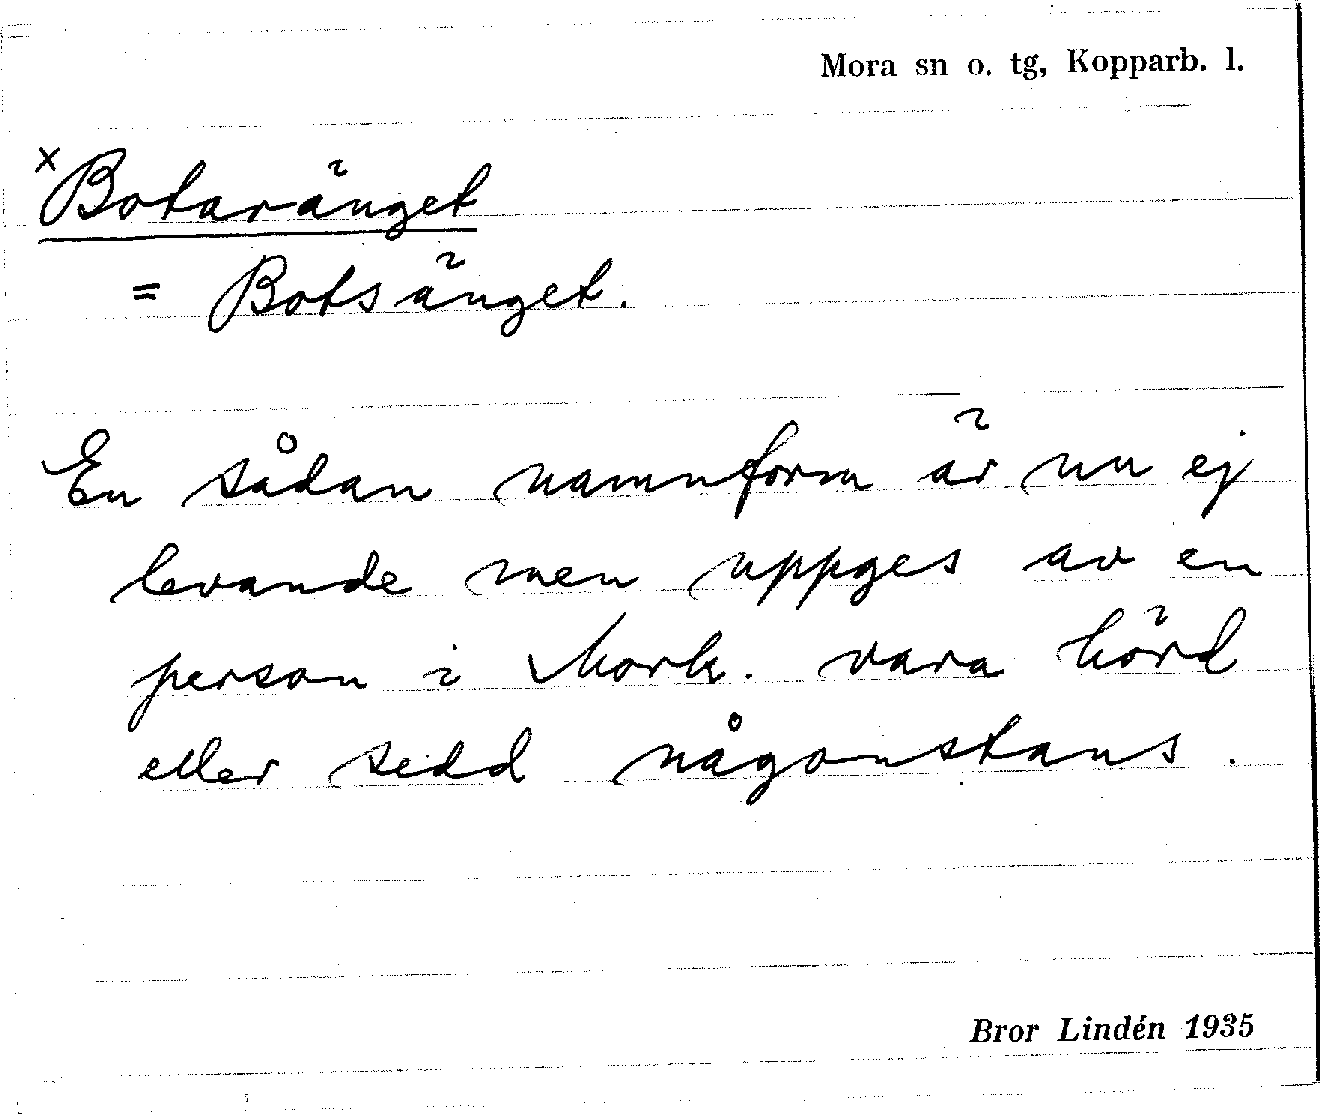 Mora sn o. tg, Kopparb. l.
×Botaränget
= Botsänget.
En sådan namnform är nu ej
levande men uppges av en
person i Mork. vara hörd
eller sedd någonstans.
Bror Lindén 1935